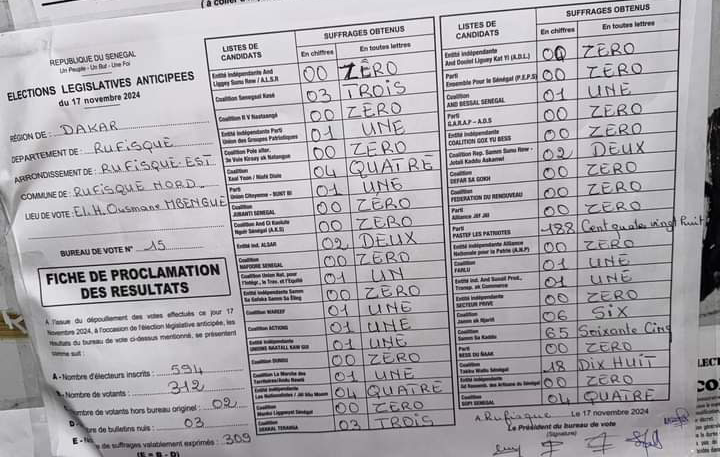 REPUBLIQUE DU SENEGAL
Un Peuple - Un But - Une Foi
ELECTIONS LEGISLATIVES ANTICIPEES
du 17 novembre 2024
RÉGION DE : DAKAR
DEPARTEMENT DE : RUFISQUE
ARRONDISSEMENT DE : RUFISQUE-EST
COMMUNE DE : RUFISQUE NORD
LIEU DE VOTE : El. H. Ousmane MBENGUE
BUREAU DE VOTE N° 15
FICHE DE PROCLAMATION
DES RESULTATS
A l'issue du dépouillement des votes effectués ce jour 17
Novembre 2024, à l'occasion de l'élection législative anticipée, les
résultats du bureau de vote ci-dessus mentionné, se présentent
comme suit :
A - Nombre d'électeurs inscrits : 594
Nombre de votants : 312
Nombre de votants hors bureau originel : 02
D - de bulletins nuls : 03
E - No de suffrages valablement exprimés : 309
(E = B - D)
LISTES DE CANDIDATS SUFFRAGES OBTENUS
En chiffres En toutes lettres
Entité indépendante And Liggey Sunu Rew / A.L.S.R 00 ZÉRO
Coalition Senegaal Kesé 03 TROIS
Coalition R V Naatangé 00 ZÉRO
Entité Indépendante Parti Union des Groupes Patriotiques 01 UNE
Coalition Pole alter. 3e Voie Kiraay ak Natangue 00 ZERO
Coalition Xaal Yoon / 04 QUATRE
Parti Union Citoyenne - BUNT BI 01 UNE
Coalition JUBANTI SENEGAL 00 ZERO
Coalition And Ci Koolute Nguir Sénégal (A.K.S) 00 ZERO
Entité ind. ALSAR 02 DEUX
Coalition NAFOORE SENEGAL 00 ZERO
Coalition Union Nat. pour l'Intégr., le Trav. et l'Equité 01 UN
Entité Indépendante Samm Sa Gafaka Samm Sa Ëlëg 00 ZERO
Coalition WAREEF 01 UNE
Coalition ACTIONS 01 UNE
Entité Indépendante UNIONS NAATALL KAW GUI 01 UNE
Coalition DUNDU 00 ZERO
Coalition La Marche des Territoires/Andu Nawlé 01 UNE
Entité Indépendante Les Nationalistes / Jël Liñu Moom 04 QUATRE
Coalition Manko Liggeeyal Sénégal 00 ZERO
Coalition SENNAL TERANGA 03 TROIS
LISTES DE CANDIDATS SUFFRAGES OBTENUS
En chiffres En toutes lettres
Entité indépendante And Doolel Liguey Kat Yi (A.D.L) 00 ZERO
Parti Ensemble Pour le Sénégal (P.E.P.S) 00 ZERO
Coalition AND BESSAL SENEGAL 01 UNE
Parti G.A.R.A.P - A.D.S 00 ZERO
Entité Indépendante COALITION GOX YU BESS 00 ZERO
Coalition Rep. Samm Sunu Rew - Jotali Kaddu Askanwi 02 DEUX
Coalition DEFAR SA GOKH 00 ZERO
Coalition FEDERATION DU RENOUVEAU 00 ZERO
Parti Alliance Jef Jel 00 ZERO
Parti PASTEF LES PATRIOTES 188 Cent quatre vingt huit
Entité Indépendante Alliance Nationale pour la Patrie (A.N.P) 00 ZERO
Coalition FARLU 01 UNE
Entité ind. And Suxali Prod., Transp. ak Commerce 01 UNE
Entité Indépendante SECTEUR PRIVE 00 ZERO
Coalition Jamm ak Njariñ 06 SIX
Coalition Samm Sa Kaddu 65 Soixante Cinq
Parti BESS DU ÑAKK 00 ZERO
Coalition Takku Wallu Sénégal 18 DIX HUIT
Entité Indépendante des Artisans du Sénégal 00 ZERO
Coalition SOPI SENEGAL 04 QUATRE
A Rufisque, Le 17 novembre 2024
Le Président du bureau de vote
(Signature)